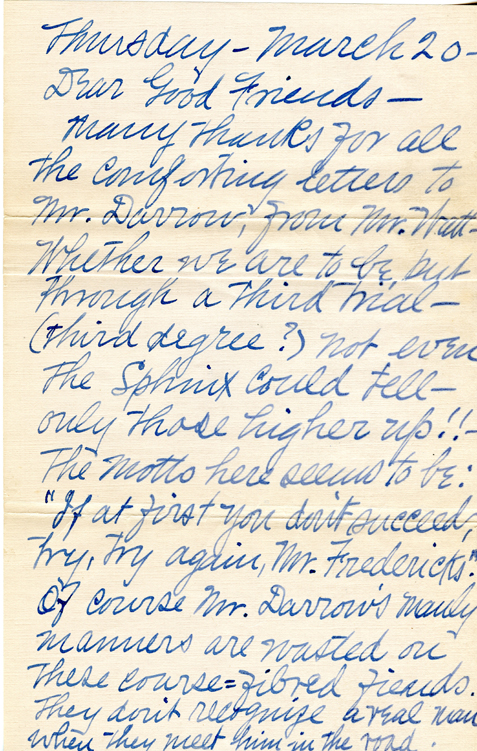 Thursday - March 20 -
Dear Good Friends -
Many thanks for all
the comforting letters to
Mr. Darrow, from Mr. Watt -
Whether we are to be put
through a third trial -
(third degree?) not even
the Sphinx could tell -
only those higher up!! -
The motto here seems to be:
"If at first you don't succeed,
try, try again, Mr. Fredericks."
Of course Mr. Darrow's manly
manners are wasted on
these course=fibred fiends.
They don't recognize a real man
when they meet him in the road.